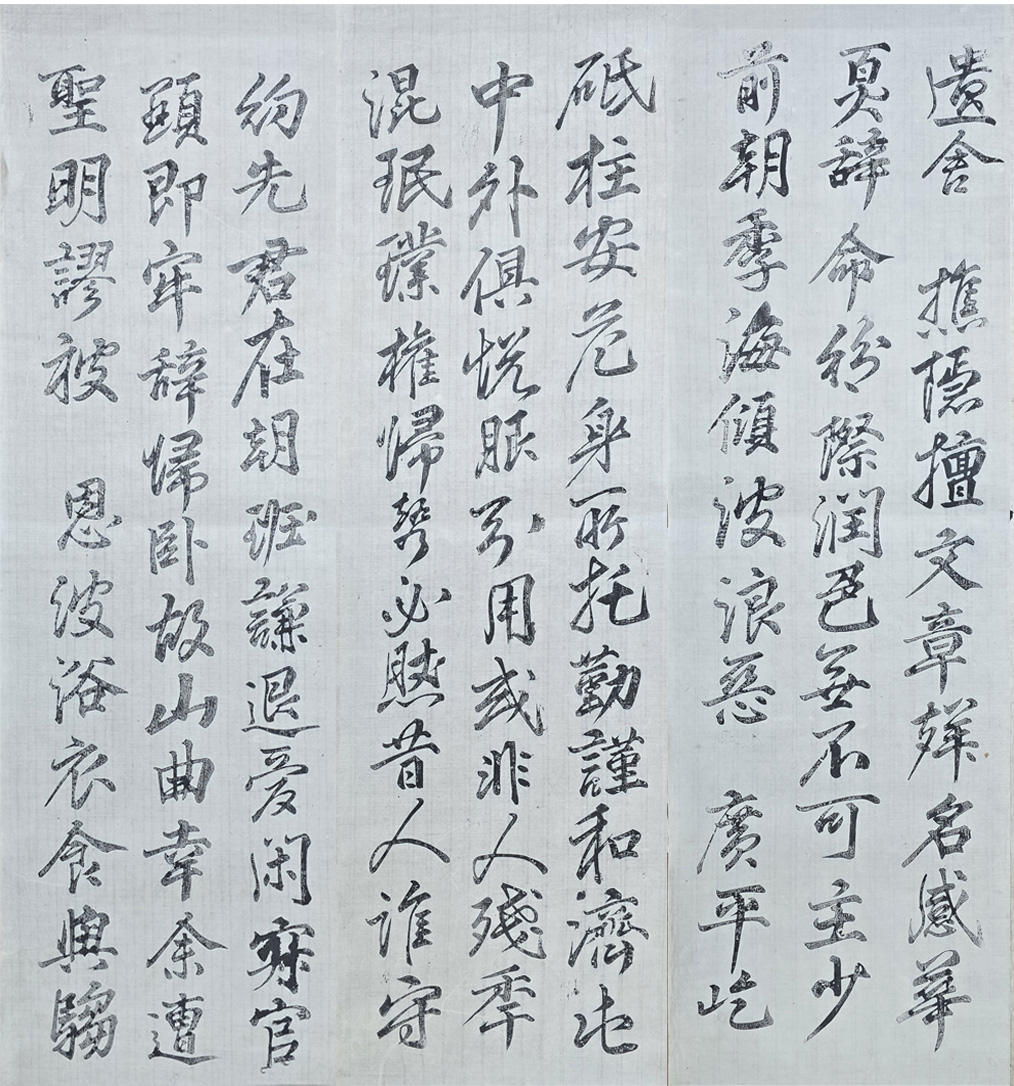 遺舍 樵隱擅文章名感華
夏辞命紛際潤色無不可主少
前朝季海傾波浪惡 廣平屹
砥柱安危身所托勤謹和濟屯
中外俱悦眼引用或非人殘季
混珉璞権帰勢必然昔人誰守
約先君在朝班謙退愛閑寂官
顕即牢辞帰臥故山曲幸余遭
聖明謬被 恩波浴衣食與騶